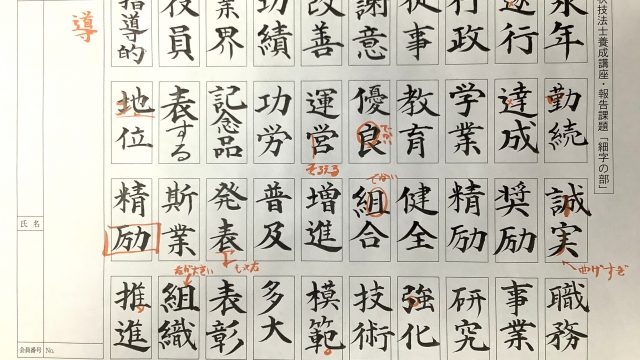 状技法士養成講座・報告課題「細字の部」
永年 勤続 誠実 職務
遂行 達成 奨励 事業
行政 学業 精励 研究
従事 教育 健全 強化
謝意 優良 組合 技術
改善 運営 増進 模範
功績 功労 普及 多大
業界 記念品 発表 表彰
役員 表する 斯業 組織
指導的 地位 精励 推進
導
でかい
でかい
そろえる
曲げすぎ
氏名
会員番号 No.